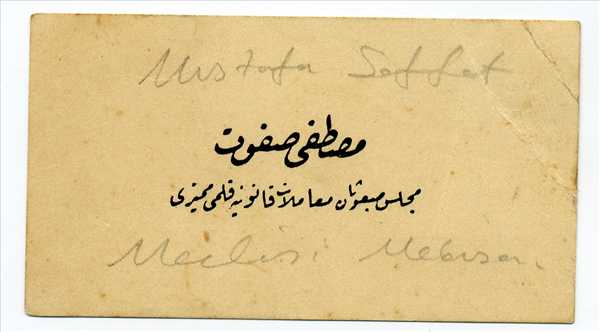 Mustafa Saffet
مصطفى صفوت
مجلس مبعوثان معاملات قانونیه قلمی ممیزی
Meclisi Mebusan